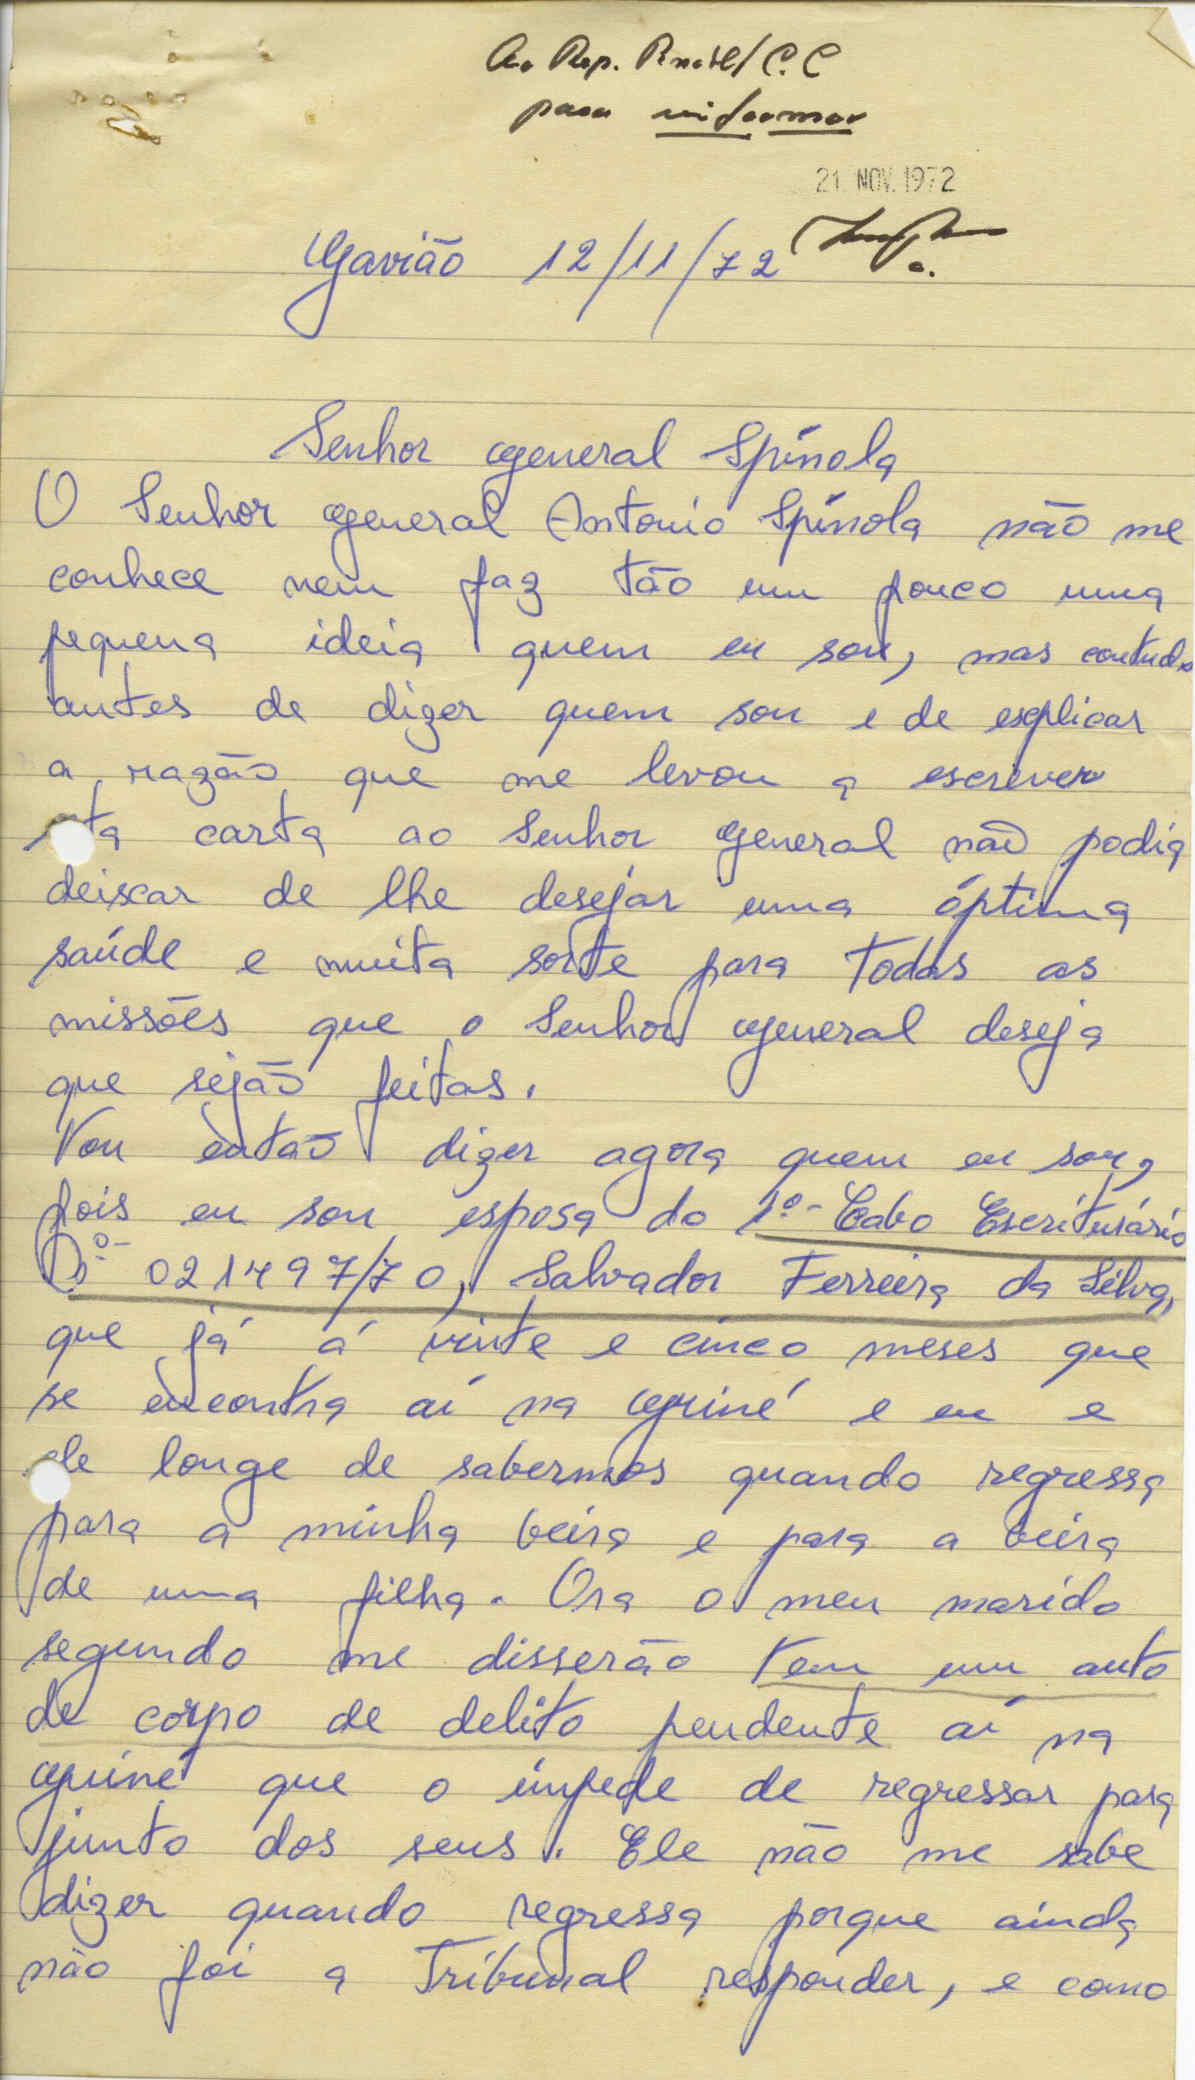 Ao Rep.
para informar
21 NOV. 1972
Gavião 12/11/72
Senhor general Spínola
O Senhor general Antonio Spínola não me
conhece nem faz tão um pouco uma
pequena ideia quem eu sou, mas contudo
antes de dizer quem sou e de esplicar
a razão que me levou a escriver
esta carta ao Senhor general não podia
deixar de lhe desejar uma óptima
saúde e muita sorte para todas as
missões que o Senhor general deseja
que sejão feitas.
Vou então dizer agora quem eu sou,
pois eu sou esposa do 1º- Cabo Escriturário
Nº- 021497/70, Salvador Ferreira da Silva,
que já á vinte e cinco meses que
se encontra aí na guiné e eu e
ele longe de sabermos quando regressa
para a minha beira e para a beira
de uma filha. Ora o meu marido
segundo me disserão tem um auto
de corpo de delito pendente aí na
guiné que o impede de regressar para
junto dos seus. Ele não me sabe
dizer quando regressa porque ainda
não foi a Tribunal responder, e como